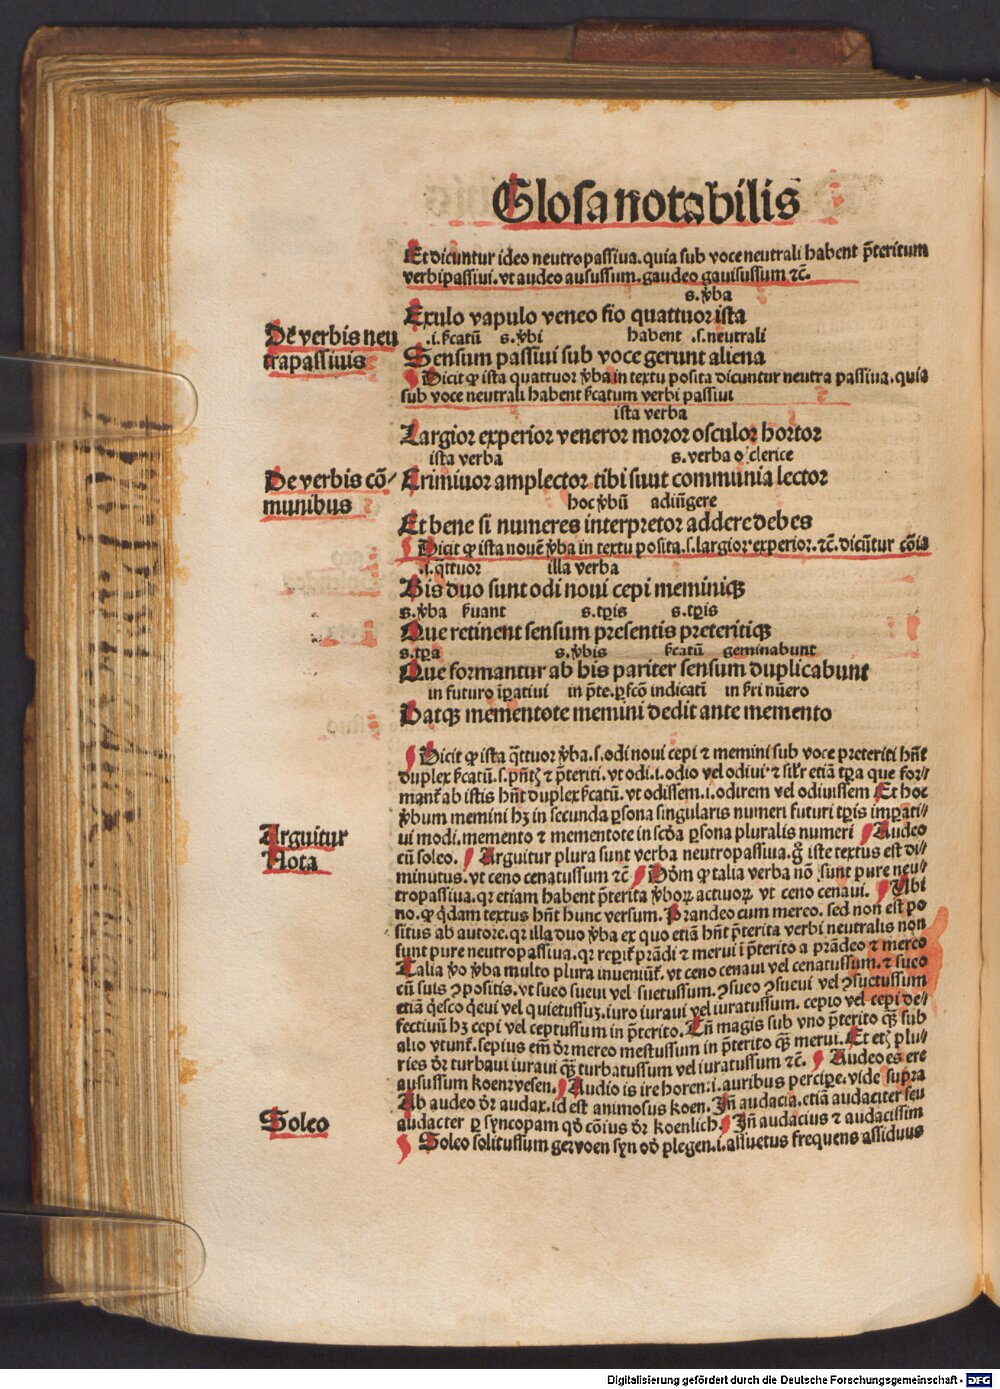 Glosa notabilis
Et dicuntur ideo neutropassiua. quia sub voce neutrali habent p̄teritum
verbi passiui. vt audeo ausussum. gaudeo gauisussum ⁊c̄.
s. v̄ba
Exulo vapulo veneo fio quattuor ista
De verbis neu
trapassiuis
.i. s̄catū s. v̄bi habent .s. neutrali
Sensum passiui sub voce gerunt aliena
Dicit ꝙ ista quattuor v̄ba in textu posita dicuntur neutra passiua. quia
sub voce neutrali habent s̄catum verbi passiui
ista verba
Largior experior veneror moror osculor hortor
ista verba s. verba o clerice
De verbis cō-
munibus
Criminor amplector tibi sunt communia lector
hoc v̄bū adiūgere
Et bene si numeres interpretor addere debes
Dicit ꝙ ista nouē v̄ba in textu posita .s. largior experior. ⁊c̄. dicūtur cōia
.i. q̄ttuor illa verba
Bis duo sunt odi noui cepi meminiqꝫ
s. v̄ba s̄uant s. tꝑis s. tꝑis
Que retinent sensum presentis preteritiqꝫ
s. tꝑa s. v̄bis s̄catū geminabunt
Que formantur ab his pariter sensum duplicabunt
in futuro īꝑatiui in p̄te. ꝑfcō indicatī in s̄ri nūero
Datqꝫ mementote memini dedit ante memento
Dicit ꝙ ista q̄ttuor v̄ba .s. odi noui cepi ⁊ memini sub voce preteriti hn̄t
duplex s̄catū .s. pn̄tꝭ ⁊ p̄teriti. vt odi .i. odio vel odiui ⁊ sil̄r etiā tꝑa que for-
mant̄ ab istis hn̄t duplex s̄catū. vt odissem .i. odirem vel odiuissem Et hoc
v̄bum memini hꝫ in secunda ꝑsona singularis numeri futuri tꝑis imꝑati-
ui modi. memento ⁊ mementote in scd̄a ꝑsona pluralis numeri Audeo
Arguitur
Nota
cū soleo. Arguitur plura sunt verba neutropassiua. g̊ iste textus est di-
minutus. vt ceno cenatussum ⁊c̄ Dd̄m ꝙ talia verba nō sunt pure neu-
tropassiua. qꝛ etiam habent p̄terita v̄boꝝ actiuoꝝ vt ceno cenaui. Vbi
no. ꝙ q̄dam textus hn̄t hunc versum. Prandeo cum merco. sed non est po
situs ab autore. qꝛ illa duo v̄ba ex quo etiā hn̄t p̄terita verbi neutralis non
sunt pure neutropassiua. qꝛ reꝑit̄ prādi ⁊ merui ī p̄terito a prādeo ⁊ merco
Talia v̊o v̄ba multo plura inueniūt̄. vt ceno cenaui vel cenatussum. ⁊ sueo
cū suis ꝯpositis. vt sueo sueui vel suetussum. ꝯsueo ꝯsueui vel ꝯsuetussum
etiā q̇esco q̇eui vel quietussuꝫ. iuro iuraui vel iuratussum. cepio vel cepi de-
fectiuū hꝫ cepi vel ceptussum in p̄terito. Tn̄ magis sub vno p̄terito qꝫ sub
alio vtunt̄. sepius em̄ dr̄ mereo mestussum in p̄terito qꝫ merui. Et etꝭ plu-
ries dr̄ turbaui iuraui qꝫ turbatussum vel iuratussum ⁊c̄. Audeo es ere
ausussum koenrvesen. Audio is ire horen .i. auribus percipe. vide supra
Ab audeo dr̄ audax. id est animosus koen. Jn̄ audacia. etiā audaciter seu
Soleo
audacter ꝑ syncopam qd̄ cōius dr̄ koenlich. Jn̄ audacius ⁊ audacissim
Soleo solitussum gewoen syn od̄ plegen .i. assuetus frequens assiduus
Digitalisierung gefördert durch die Deutsche Forschungsgemeinschaft - DFG